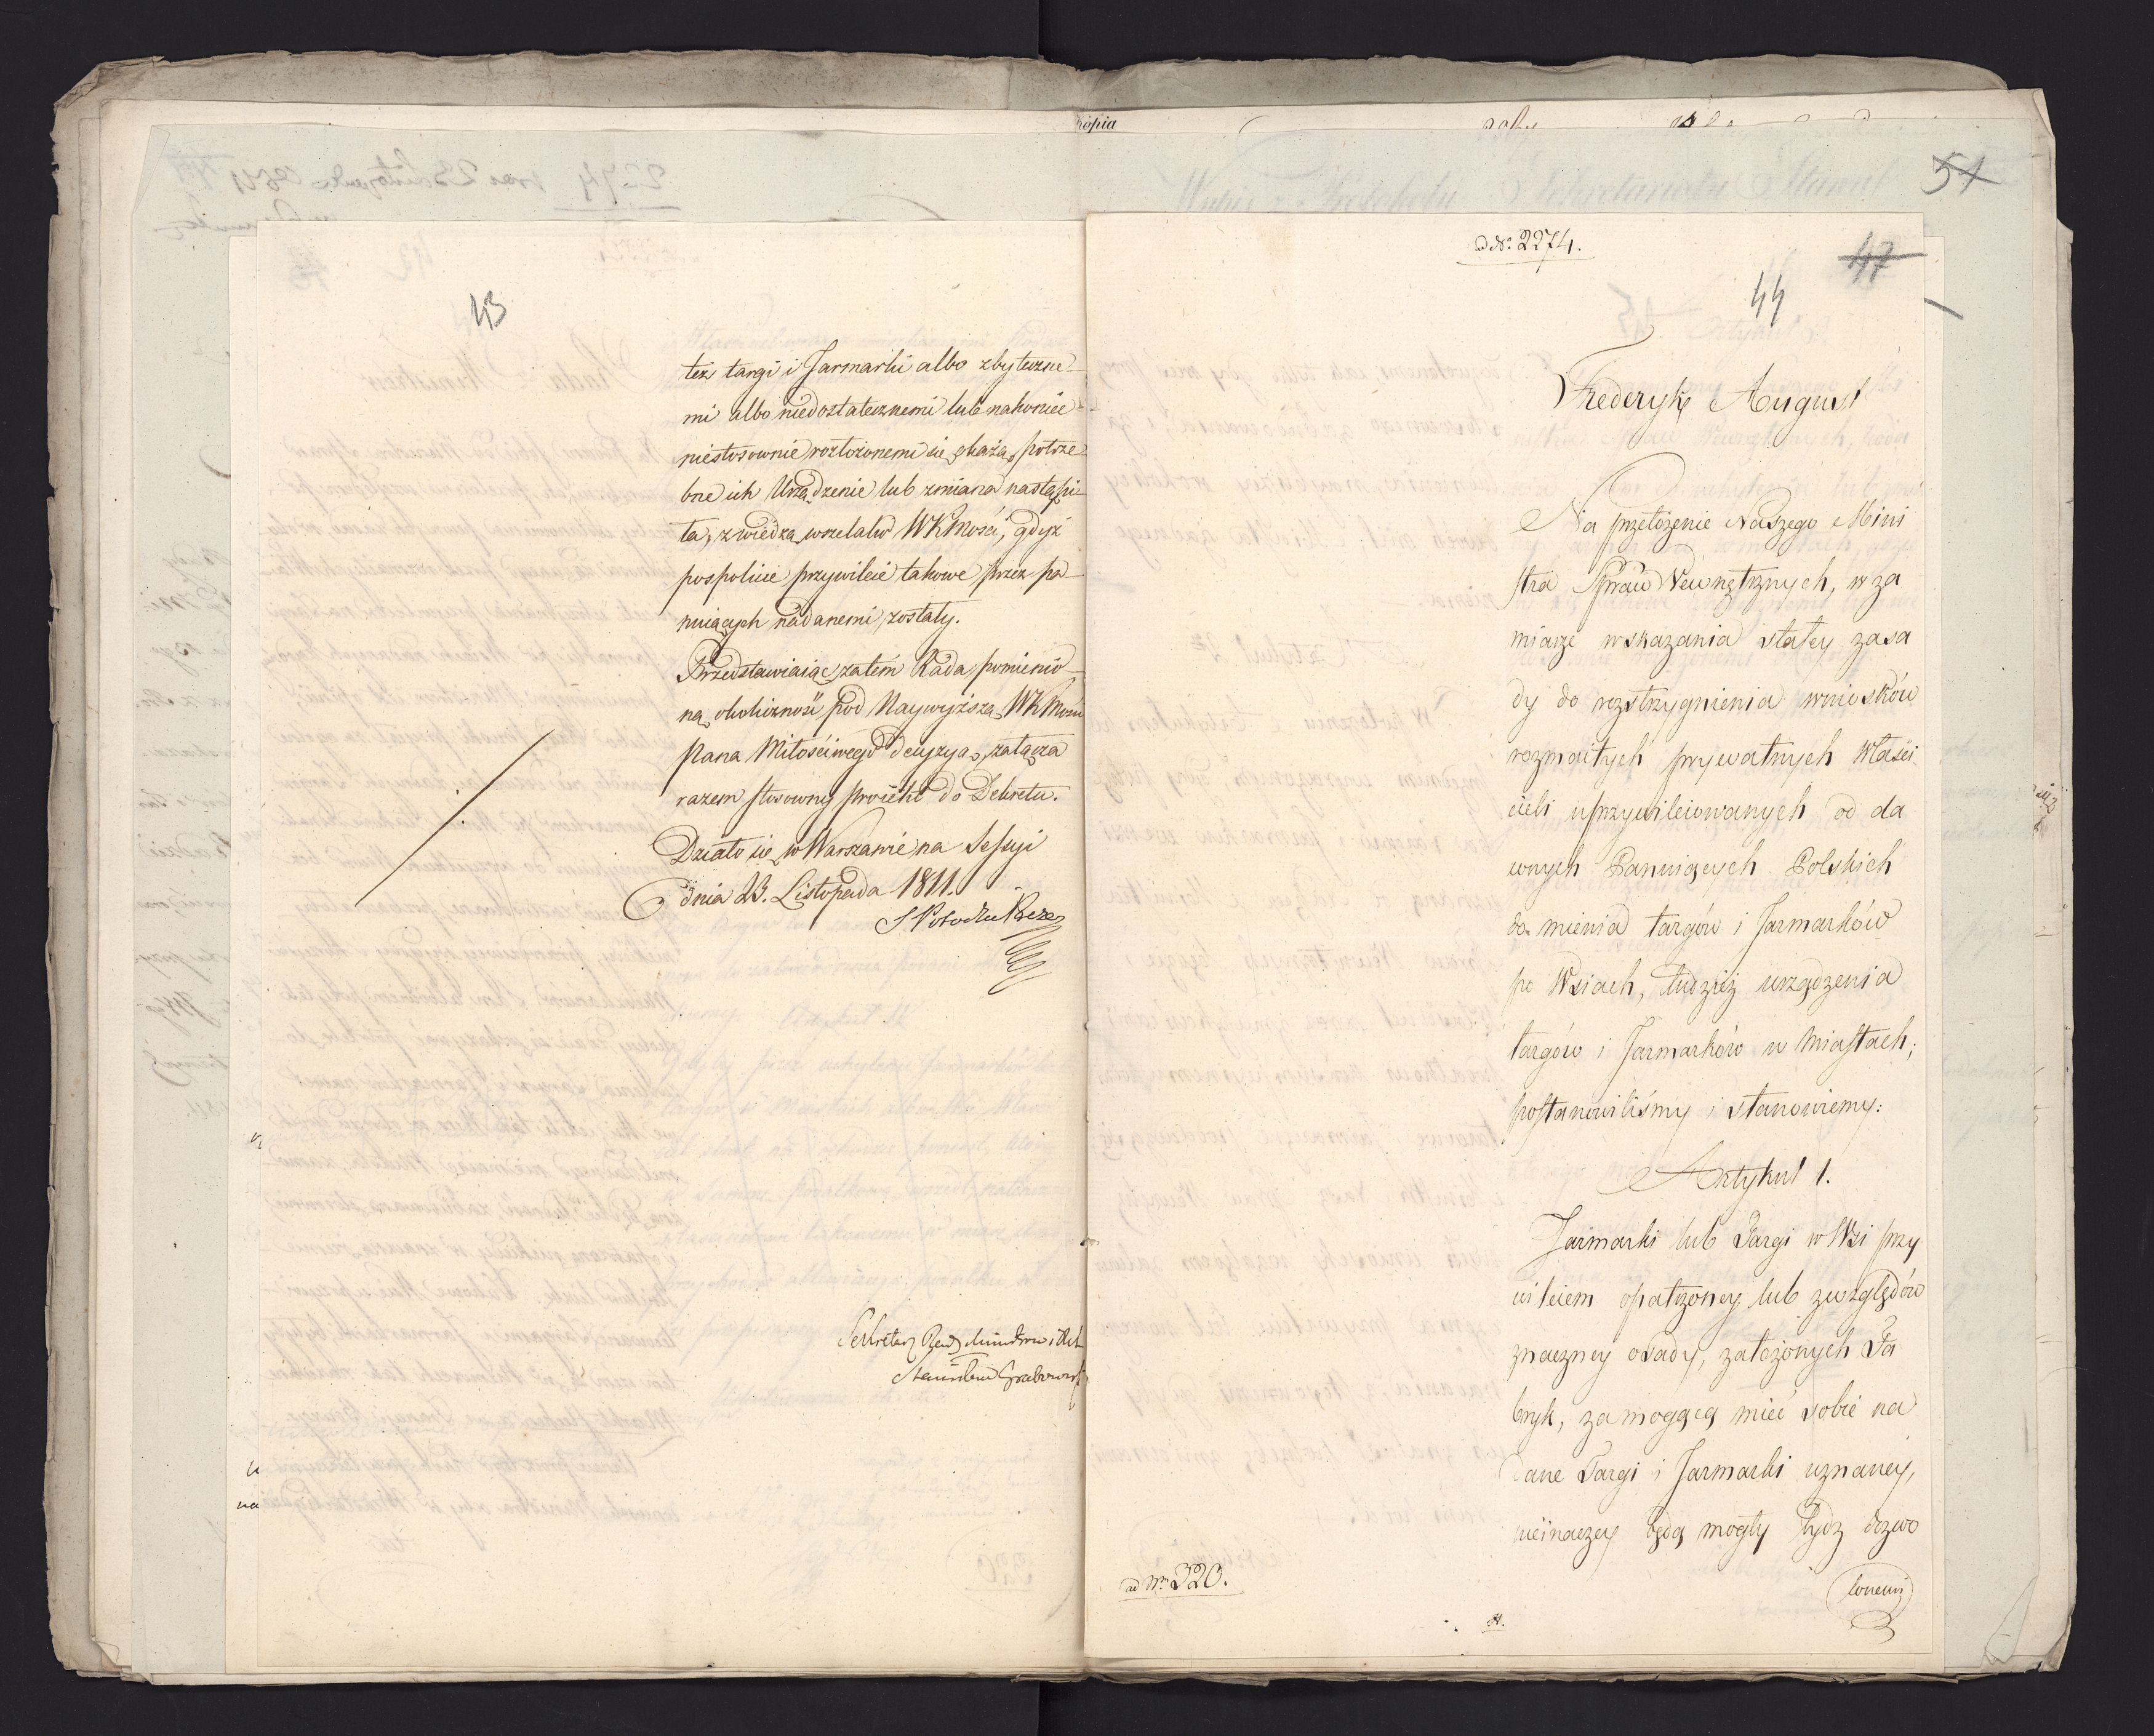 43
też targi i Jarmarki albo zbyteczne-
mi albo niedostatecznemi lub nakoniec
niestosownie rozłożonemi się okażą, potrze-
bne ich Urządzenie lub zmiana nastąpi-
ła, z wiedzą wszelako WKMości, gdyż
pospolicie przywileie takowe przez pa-
nuiących nadanemi zostały.
Przedstawiaiąc zatem Rada pomienio-
ną okoliczność pod Naywyższą WKMości
Pana Miłościwego decyzyą, załącza
razem stosowny proiekt do Dekretu.
Działo się w Warszawie na Sessyi
dnia 23. Listopada 1811.
Sekretarz Rady Ministrów
Stanisław Grabowski
kopia
51
ad No. 2274.
47
44
Frederyk August
Na przełożenie Naszego Mini
stra Spraw Wewnętrznych, w za
miarze wskazania stałey zasa
dy do rozstrzygnienia wniosków
rozmaitych prywatnych Właści
cieli uprzywileiowanych od da
wnych Panuiących Polskich
do mienia targów i Jarmarków
po Wsiach, tudzież urządzenia
targów i Jarmarków w Miastach;
postanowiliśmy i stanowiemy:
Artykuł 1.
Jarmarki lub Targi w Wsi przy
wileiem opatrzoney lub z względów
znaczney osady, założonych Fa
bryk, za mogącą mieć sobie na
dane Targi i Jarmarki uznaney,
nieinaczey będą mogły bydz dozwo
lonemi
ad Nrm 320.